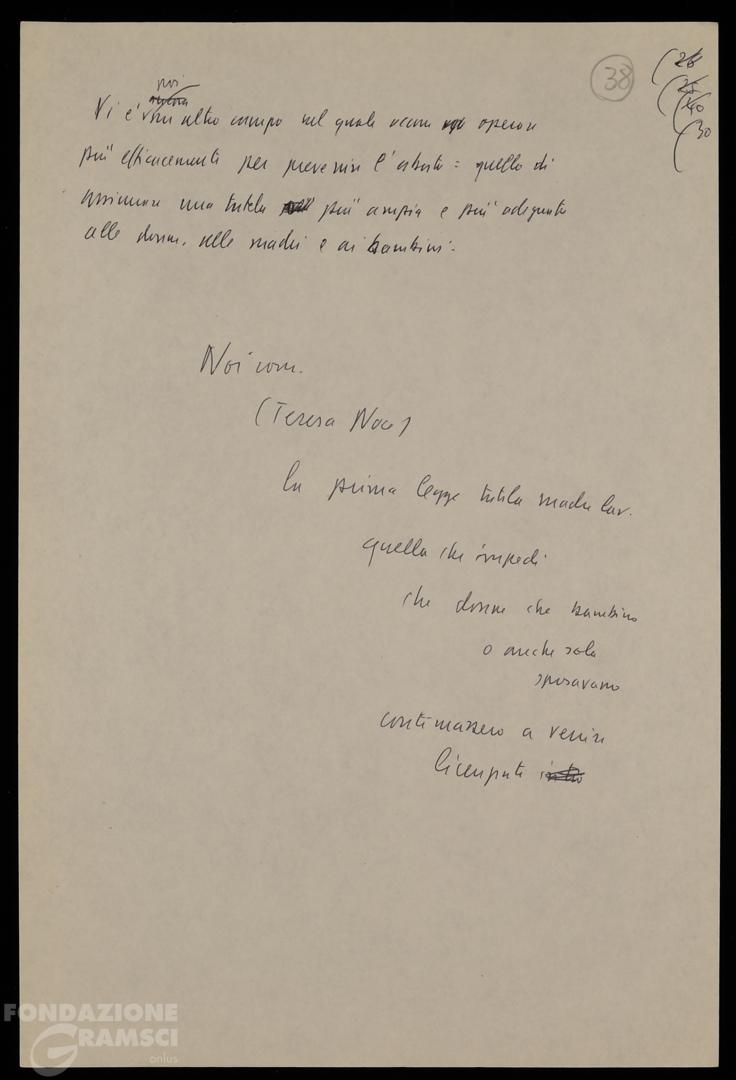 38
(26
(25
(40
(30
poi
Vi è un altro campo nel quale occorre operare
più efficacemente per prevenire l'aborto: quello di
assicurare una tutela più ampia e più adeguata
alle donne, alle madri e ai bambini.
Noi com.
(Teresa Noce)
la prima legge tutela madri lav.
quella che impedì
che donne che bambino
o anche solo
sposavano
continuassero a venire
licenziate
FONDAZIONE
GRAMSCI
onlus